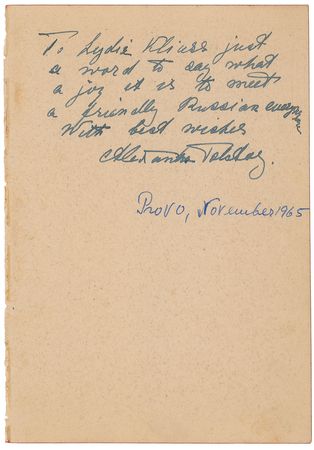 To Lydie Kliuss just
a word to say what
a joy it is to meet
a friendly Russian everywhere
With best wishes
Alexandra Tolstoy.
Provo, November 1965